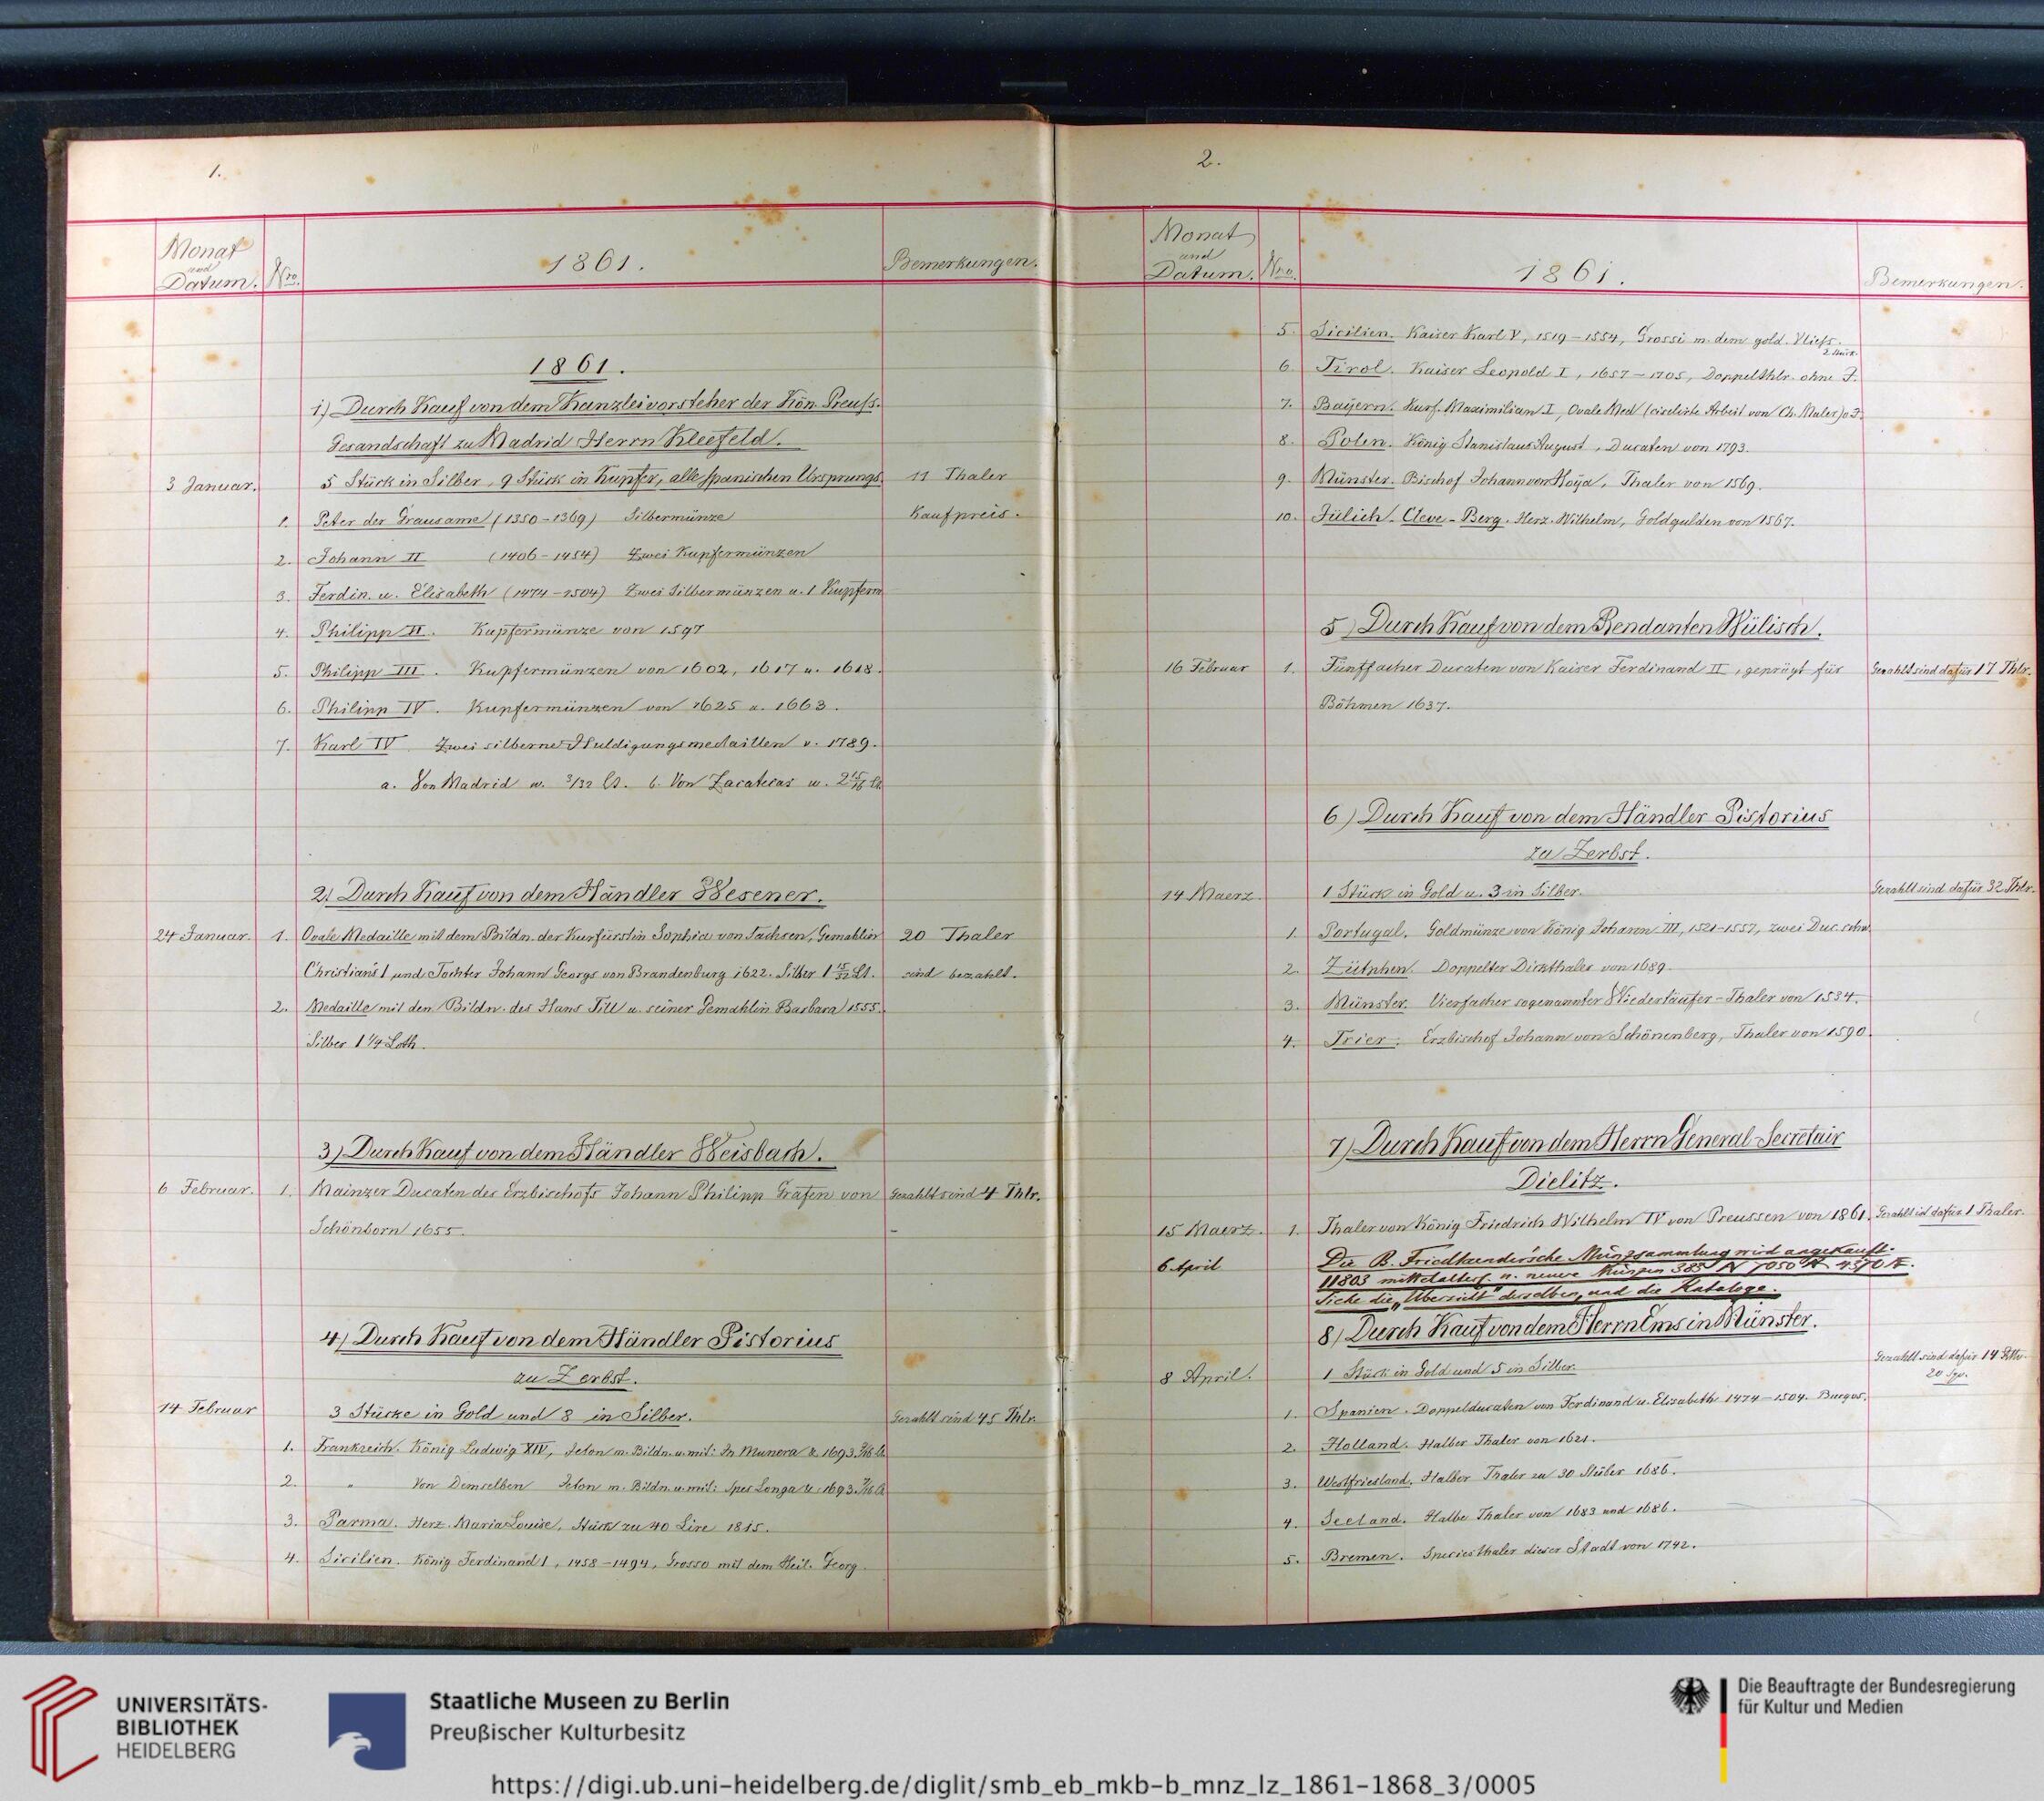 1.
Monat
und
Datum.
Nro.
1861.
Bemerkungen.
1861.
1.) Durch Kauf von dem Kanzleivorsteher der Kön. Preuss.
Gesandschaft zu Madrid Herrn Kleefeld.
3 Januar.
5 Stück in Silber, 9 Stück in Kupfer, alle spanischen Ursprungs.
11 Thaler
1. Peter der Grausame (1350-1369) Silbermünze
Kaufpreis.
2. Johann II (1406-1454) Zwei Kupfermünzen
3. Ferdin. u. Elisabeth (1474-1504) Zwei Silbermünzen u. 1 Kupferm
4. Philipp II. Kupfermünze von 1597
5. Philipp III. Kupfermünzen von 1602, 1617 u. 1618.
6. Philipp IV. Kupfermünzen von 1625 u. 1663.
7. Karl IV. Zwei silberne Huldigungsmedaillen v. 1789.
a. Von Madrid w. 3/32 Lt. b. Von Zacatecas w. 2 15/16 Lt.
2.) Durch Kauf von dem Händler Wesener.
24 Januar. 1. Ovale Medaille mit dem Bildn. der Kurfürstin Sophia von Sachsen, Gemahlin
20 Thaler
Christians I und Tochter Johann Georgs von Brandenburg 1622. Silber 1 15/32 Lt.
sind bezahlt.
2. Medaille mit den Bildn. des Hans Till u. seiner Gemahlin Barbara 1555.
Silber 1 1/4 Loth.
3.) Durch Kauf von dem Händler Weisbach.
6 Februar. 1. Mainzer Ducaten des Erzbischofs Johann Philipp Grafen von
Gezahlt sind 4 Thlr.
Schönborn 1655.
4.) Durch Kauf von dem Händler Pistorius
zu Zerbst.
14 Februar
3 Stücke in Gold und 8 in Silber.
Gezahlt sind 45 Thlr.
1. Frankreich. König Ludwig XIV, Jeton m. Bildn. u. mit: In Munera &c 1693.
2. " Von Demselben Jeton m. Bildn. u. mit: Spes Longa &c. 1693.
3. Parma. Herz. Maria Louise, Stück zu 40 Lire 1815.
4. Sicilien. König Ferdinand I, 1458-1494, Grosso mit dem Heil. Georg.
2.
Monat
und
Datum.
Nro.
1861.
Bemerkungen.
5. Sicilien. Kaiser Karl V, 1519-1554, Grossi m. dem gold. Vliess.
2 Stück.
6. Tirol. Kaiser Leopold I, 1657-1705, Doppelthlr. ohne J.
7. Bayern. Kurf. Maximilian I, Ovale Med (ciselirte Arbeit von Ch. Maler) o J.
8. Polen. König Stanislaus August, Ducaten von 1793.
9. Münster. Bischof Johann von Hoya, Thaler von 1569.
10. Jülich-Cleve-Berg. Herz. Wilhelm, Goldgulden von 1567.
5.) Durch Kauf von dem Rendanten Wülisch.
16 Februar 1. Fünffacher Ducaten von Kaiser Ferdinand II, geprägt für
Gezahlt sind dafür 17 Thlr.
Böhmen 1637.
6.) Durch Kauf von dem Händler Pistorius
zu Zerbst.
14 Maerz.
1 Stück in Gold u. 3 in Silber.
Gezahlt sind dafür 32 Thlr.
1. Portugal. Goldmünze von König Johann III, 1521-1557, zwei Duc. schw.
2. Zütphen. Doppelter Dickthaler von 1689.
3. Münster. Vierfacher sogenannter Wiedertäufer-Thaler von 1534.
4. Trier. Erzbischof Johann von Schönenberg, Thaler von 1590.
7.) Durch Kauf von dem Herrn General-Secretair
Dielitz.
15 Maerz. 1. Thaler von König Friedrich Wilhelm IV von Preussen von 1861.
Gezahlt ist dafür 1 Thaler.
6 April
Die B. Friedlaender'sche Münzsammlung wird angekauft.
11803 mittelalterl. u. neuere Münzen 385 N 7050
Siehe die "Übersicht" derselben und die Kataloge.
8.) Durch Kauf von dem Herrn Ems in Münster.
8 April.
1 Stück in Gold und 5 in Silber.
Gezahlt sind dafür 14 Thlr.
20 Sgr.
1. Spanien. Doppelducaten von Ferdinand u. Elizabeth 1474-1504. Burgos.
2. Holland. Halber Thaler von 1621.
3. Westfriesland. Halber Thaler zu 30 Stüber 1686.
4. Seeland. Halbe Thaler von 1683 und 1686.
5. Bremen. Speciesthaler dieser Stadt von 1742.
UNIVERSITÄTS-
BIBLIOTHEK
HEIDELBERG
Staatliche Museen zu Berlin
Preußischer Kulturbesitz
Die Beauftragte der Bundesregierung
für Kultur und Medien
https://digi.ub.uni-heidelberg.de/diglit/smb_eb_mkb-b_mnz_lz_1861-1868_3/0005